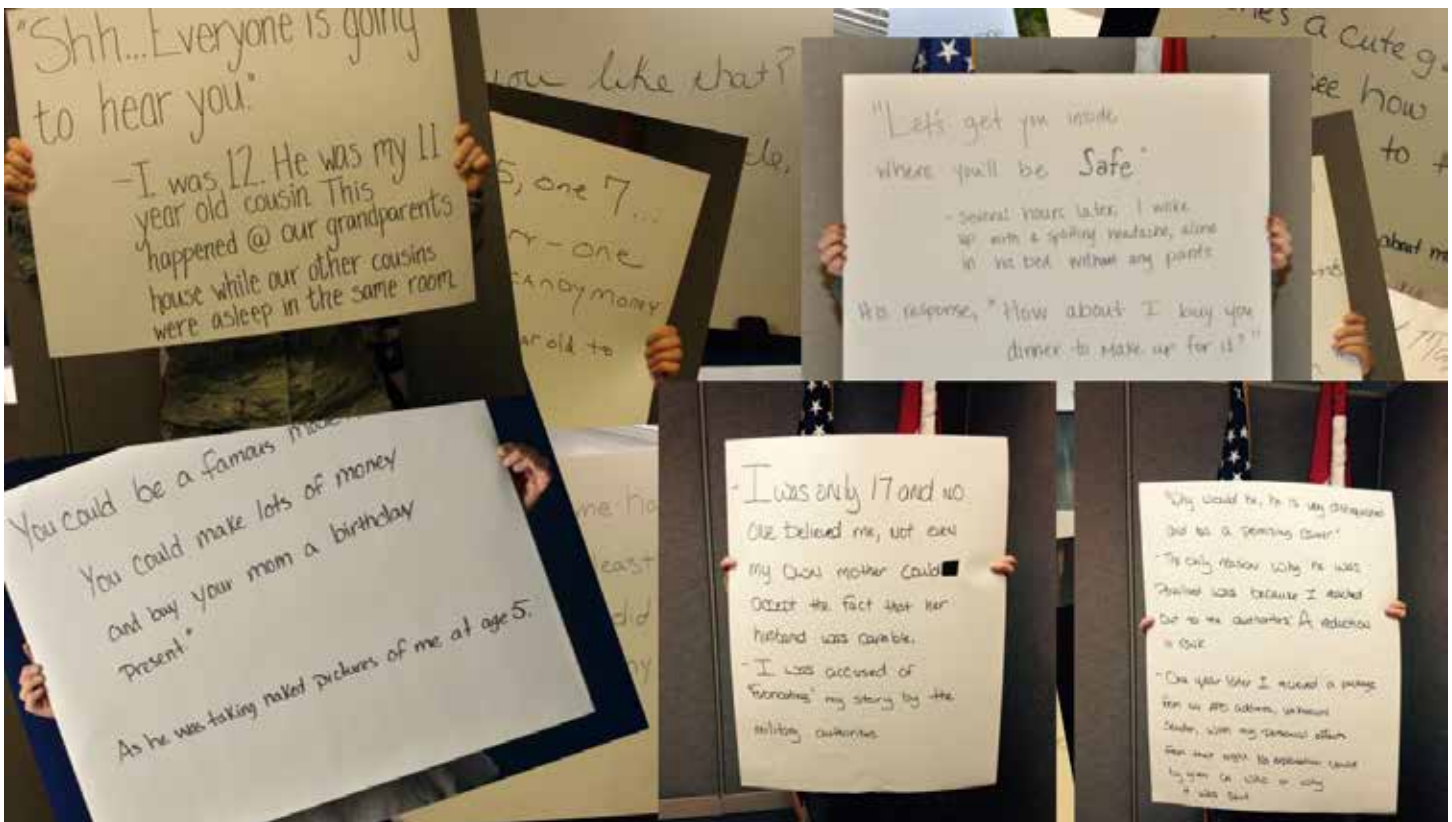 "Shh...Everyone is going
to hear you."
-I was 12. He was my 11
year old cousin. This
happened @ our grandparents
house while our other cousins
were asleep in the same room.
you like that?
5, one 7...
one
CANDY MONEY
old to
"Let's get you inside
where you'll be Safe"
- Several hours later, I woke
up with a splitting headache, alone
in his bed without any pants
His response, "How about I buy you
dinner to make up for it?"
a cute
see how
to
about
You could be a famous
You could make lots of money
and buy your mom a birthday
present."
As he was taking naked pictures of me at age 5.
east
did
- I was only 17 and no
one believed me, not even
my own mother could
accept the fact that her
husband was capable.
- I was accused of
my story by the
military authorities
"Why would he, he is very distinguished
and has a promising career"
- The only reason why he was
punished was because I reached
out to the authorities. A reduction
in rank
- One year later I received a package
from an APO address, unknown
sender, with my personal effects
from that night. No explanation could
be given on who or why
it was sent